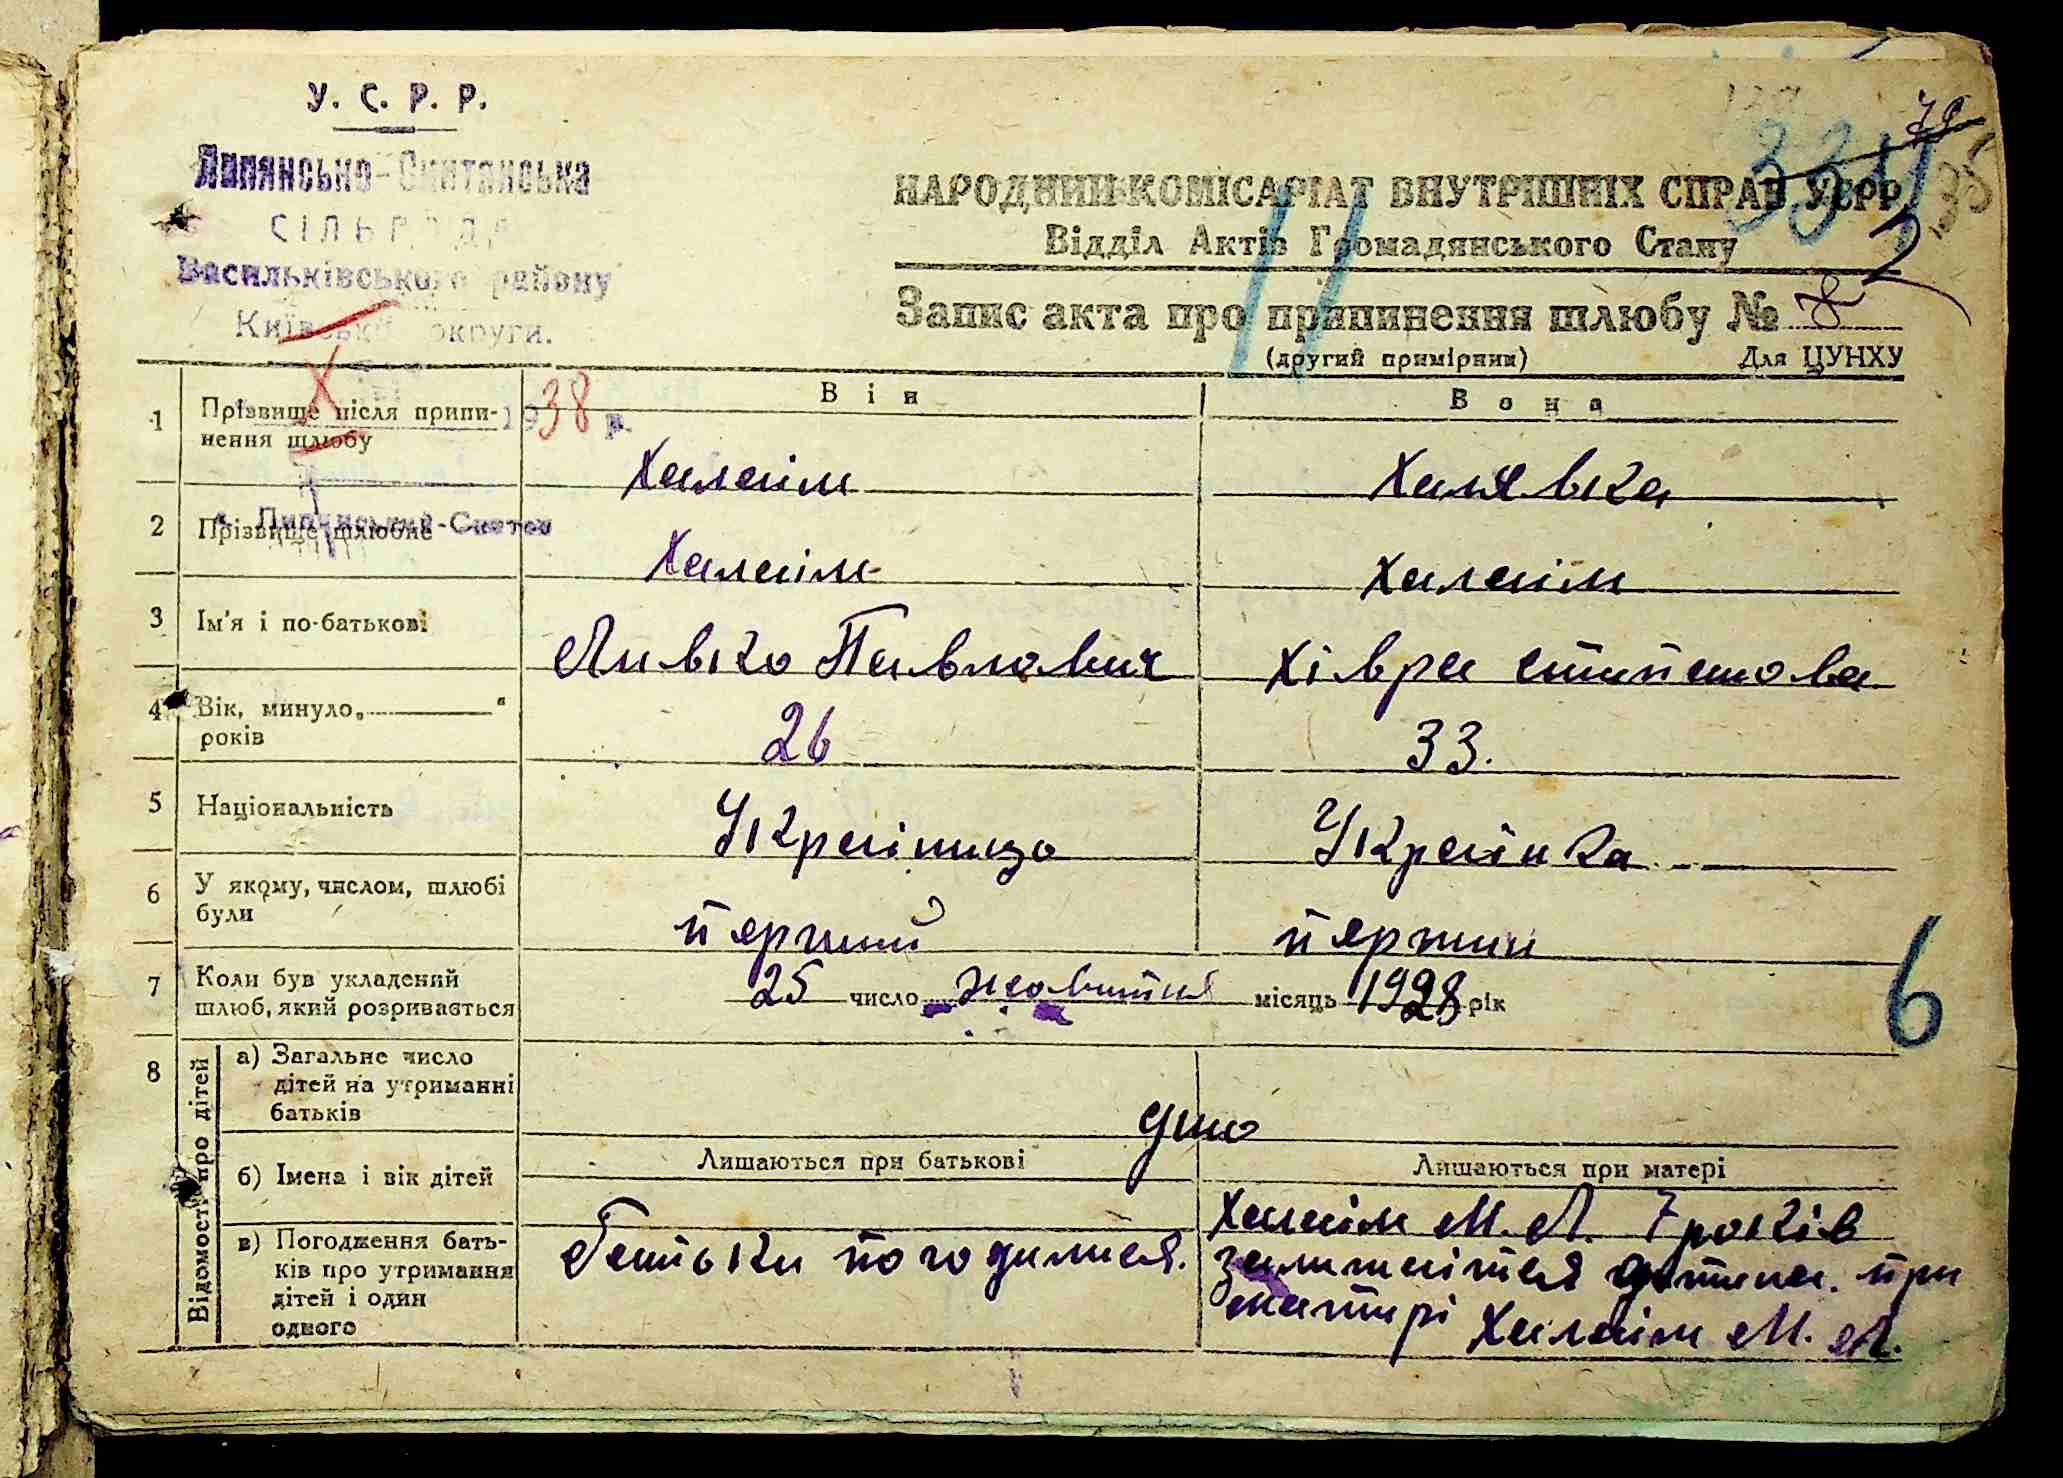 У. С. Р. Р.
Липянсько-Скитянська
СІЛЬРАДА
Васильківського району
Київської округи.
1938 р.
НАРОДНИЙ КОМІСАРІАТ ВНУТРІШНІХ СПРАВ УСРР
Відділ Актів Громадянського Стану
Запис акта про припинення шлюбу № 8
(другий примірник) Для ЦУНХУ
11
2
Він Вона
1 Прізвище після припинення шлюбу Халаім Халявка
2 Прізвище шлюбне Халаім Халаім
3 Ім'я і по-батькові Павлович Хівра
4 Вік, минуло „ “ років 26 33.
5 Національність Українка
6 У якому, числом, шлюбі були перший
7 Коли був укладений шлюб, який розривається 25 число жовтня місяць 1928 рік
6
8 Відомості про дітей
а) Загальне число дітей на утриманні батьків одно
б) Імена і вік дітей Лишаються при батькові Лишаються при матері
Халаім М. Л. 7 років
в) Погодження батьків про утримання дітей і один одного Батьки погодилися.
при
матирі Халаім М. Л.